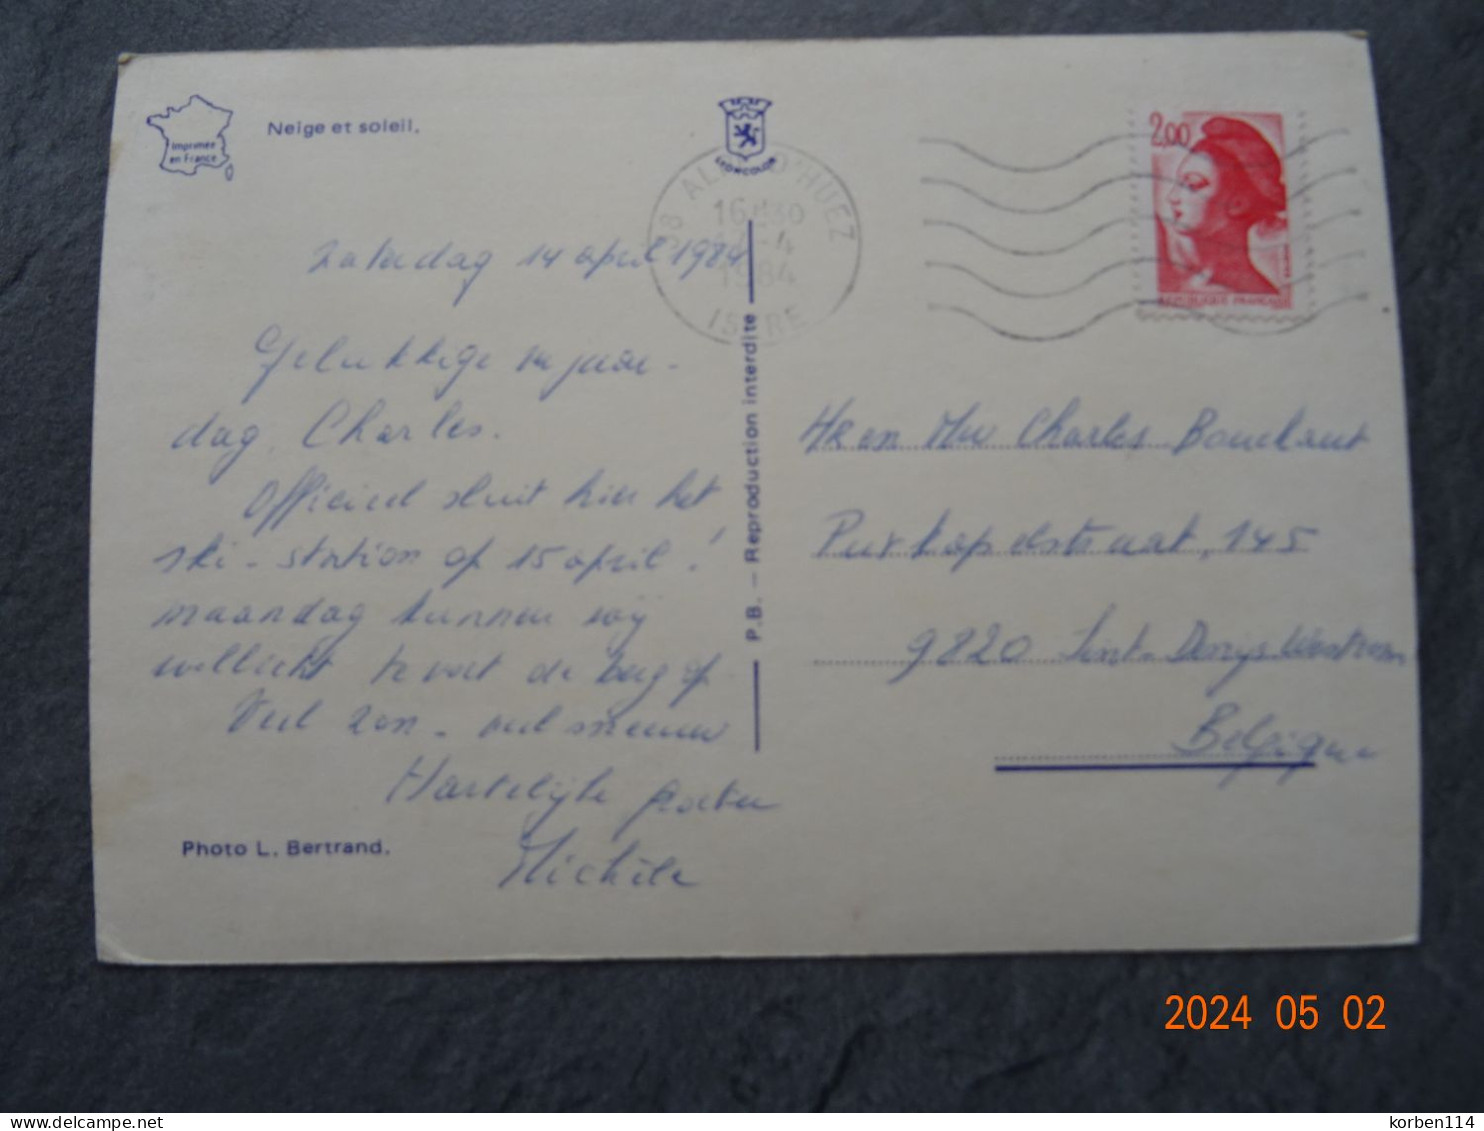 Imprimée
en France
Neige et soleil.
LYONCOLOR
38 ALPE D'HUEZ
16H30
-4
1984
ISERE
2,00
REPUBLIQUE FRANÇAISE
Zaterdag 14 april 1984
Gelukkige verjaar-
dag, Charles.
Officieel sluit hier het
ski-station op 15 april!
maandag kunnen wij
wellicht te voet de berg op
Veel zon - veel sneeuw
Hartelijke groeten
Michèle
Photo L. Bertrand.
P.B. — Reproduction interdite
Hr en Mw Charles
Purkapelstraat, 145
9820 Sint-Denijs-Westrem
Belgique
2024 05 02
korben114